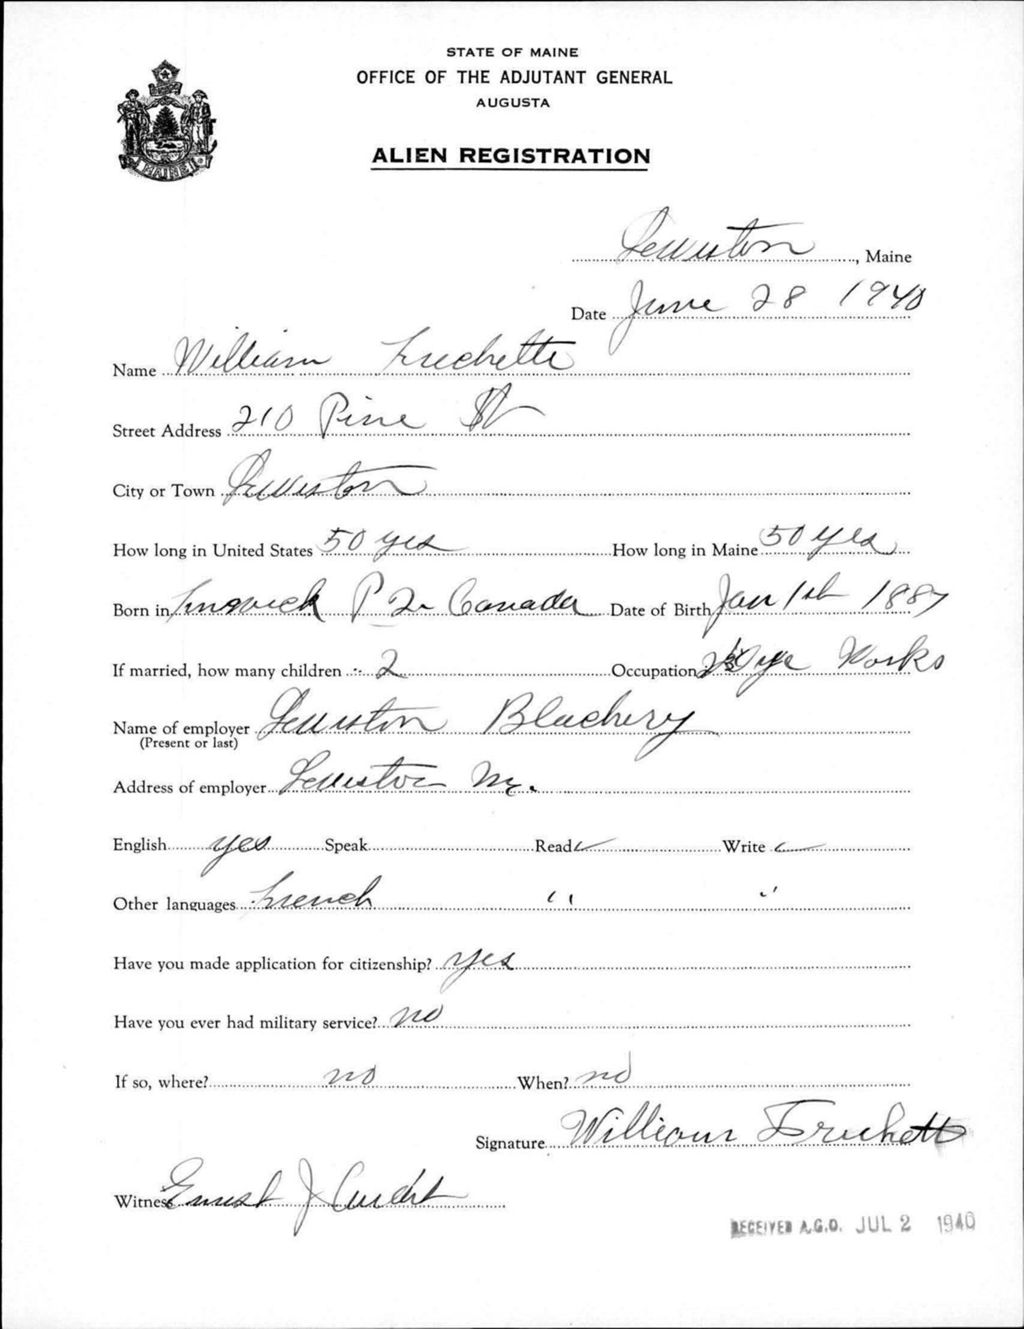 STATE OF MAINE
OFFICE OF THE ADJUTANT GENERAL
AUGUSTA
ALIEN REGISTRATION
MAINE
Lewiston, Maine
Date June 28 1940
Name William Frechette
Street Address 210 Pine St
City or Town Lewiston
How long in United States 50 yrs How long in Maine 50 yrs
Born in P Q Canada Date of Birth Jan 1st 1887
If married, how many children 2 Occupation Dye Works
Name of employer Lewiston Blachery
(Present or last)
Address of employer Lewiston Me.
English yes Speak Read ✓ Write ✓
Other languages French " "
Have you made application for citizenship? yes
Have you ever had military service? no
If so, where? no When? no
Signature William Frechette
Witness Ernest J
RECEIVED A.G.O. JUL 2 1940